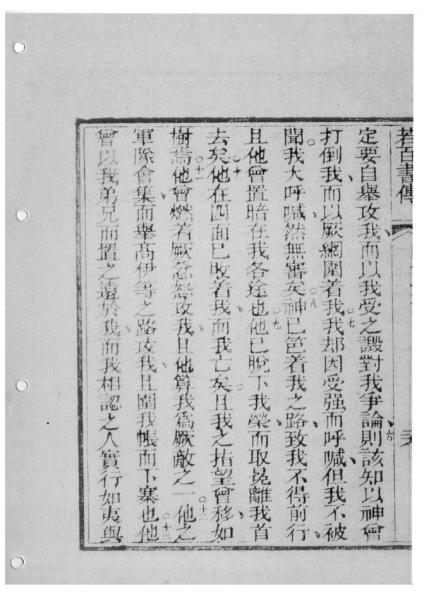 若百書傳
定要自舉攻我而以我受之譭對我爭論則該知以神會
打倒我而以厥網圍着我我却因受强而呼喊但我不被
聞我大呼喊然無審矣神已笆着我之路致我不得前行
且他曾置暗在我各途也他已脫下我榮而取冕離我首
去矣他在四面已敗着我而我亡矣且我之指望曾移如
樹焉他曾燃着厥忿怒攻我且他算我爲厥敵之一他之
軍隊會集而舉高伊等之路攻我且圍我帳而下寨也他
曾以我弟兄而置之遠於我而我相認之人實行如夷與